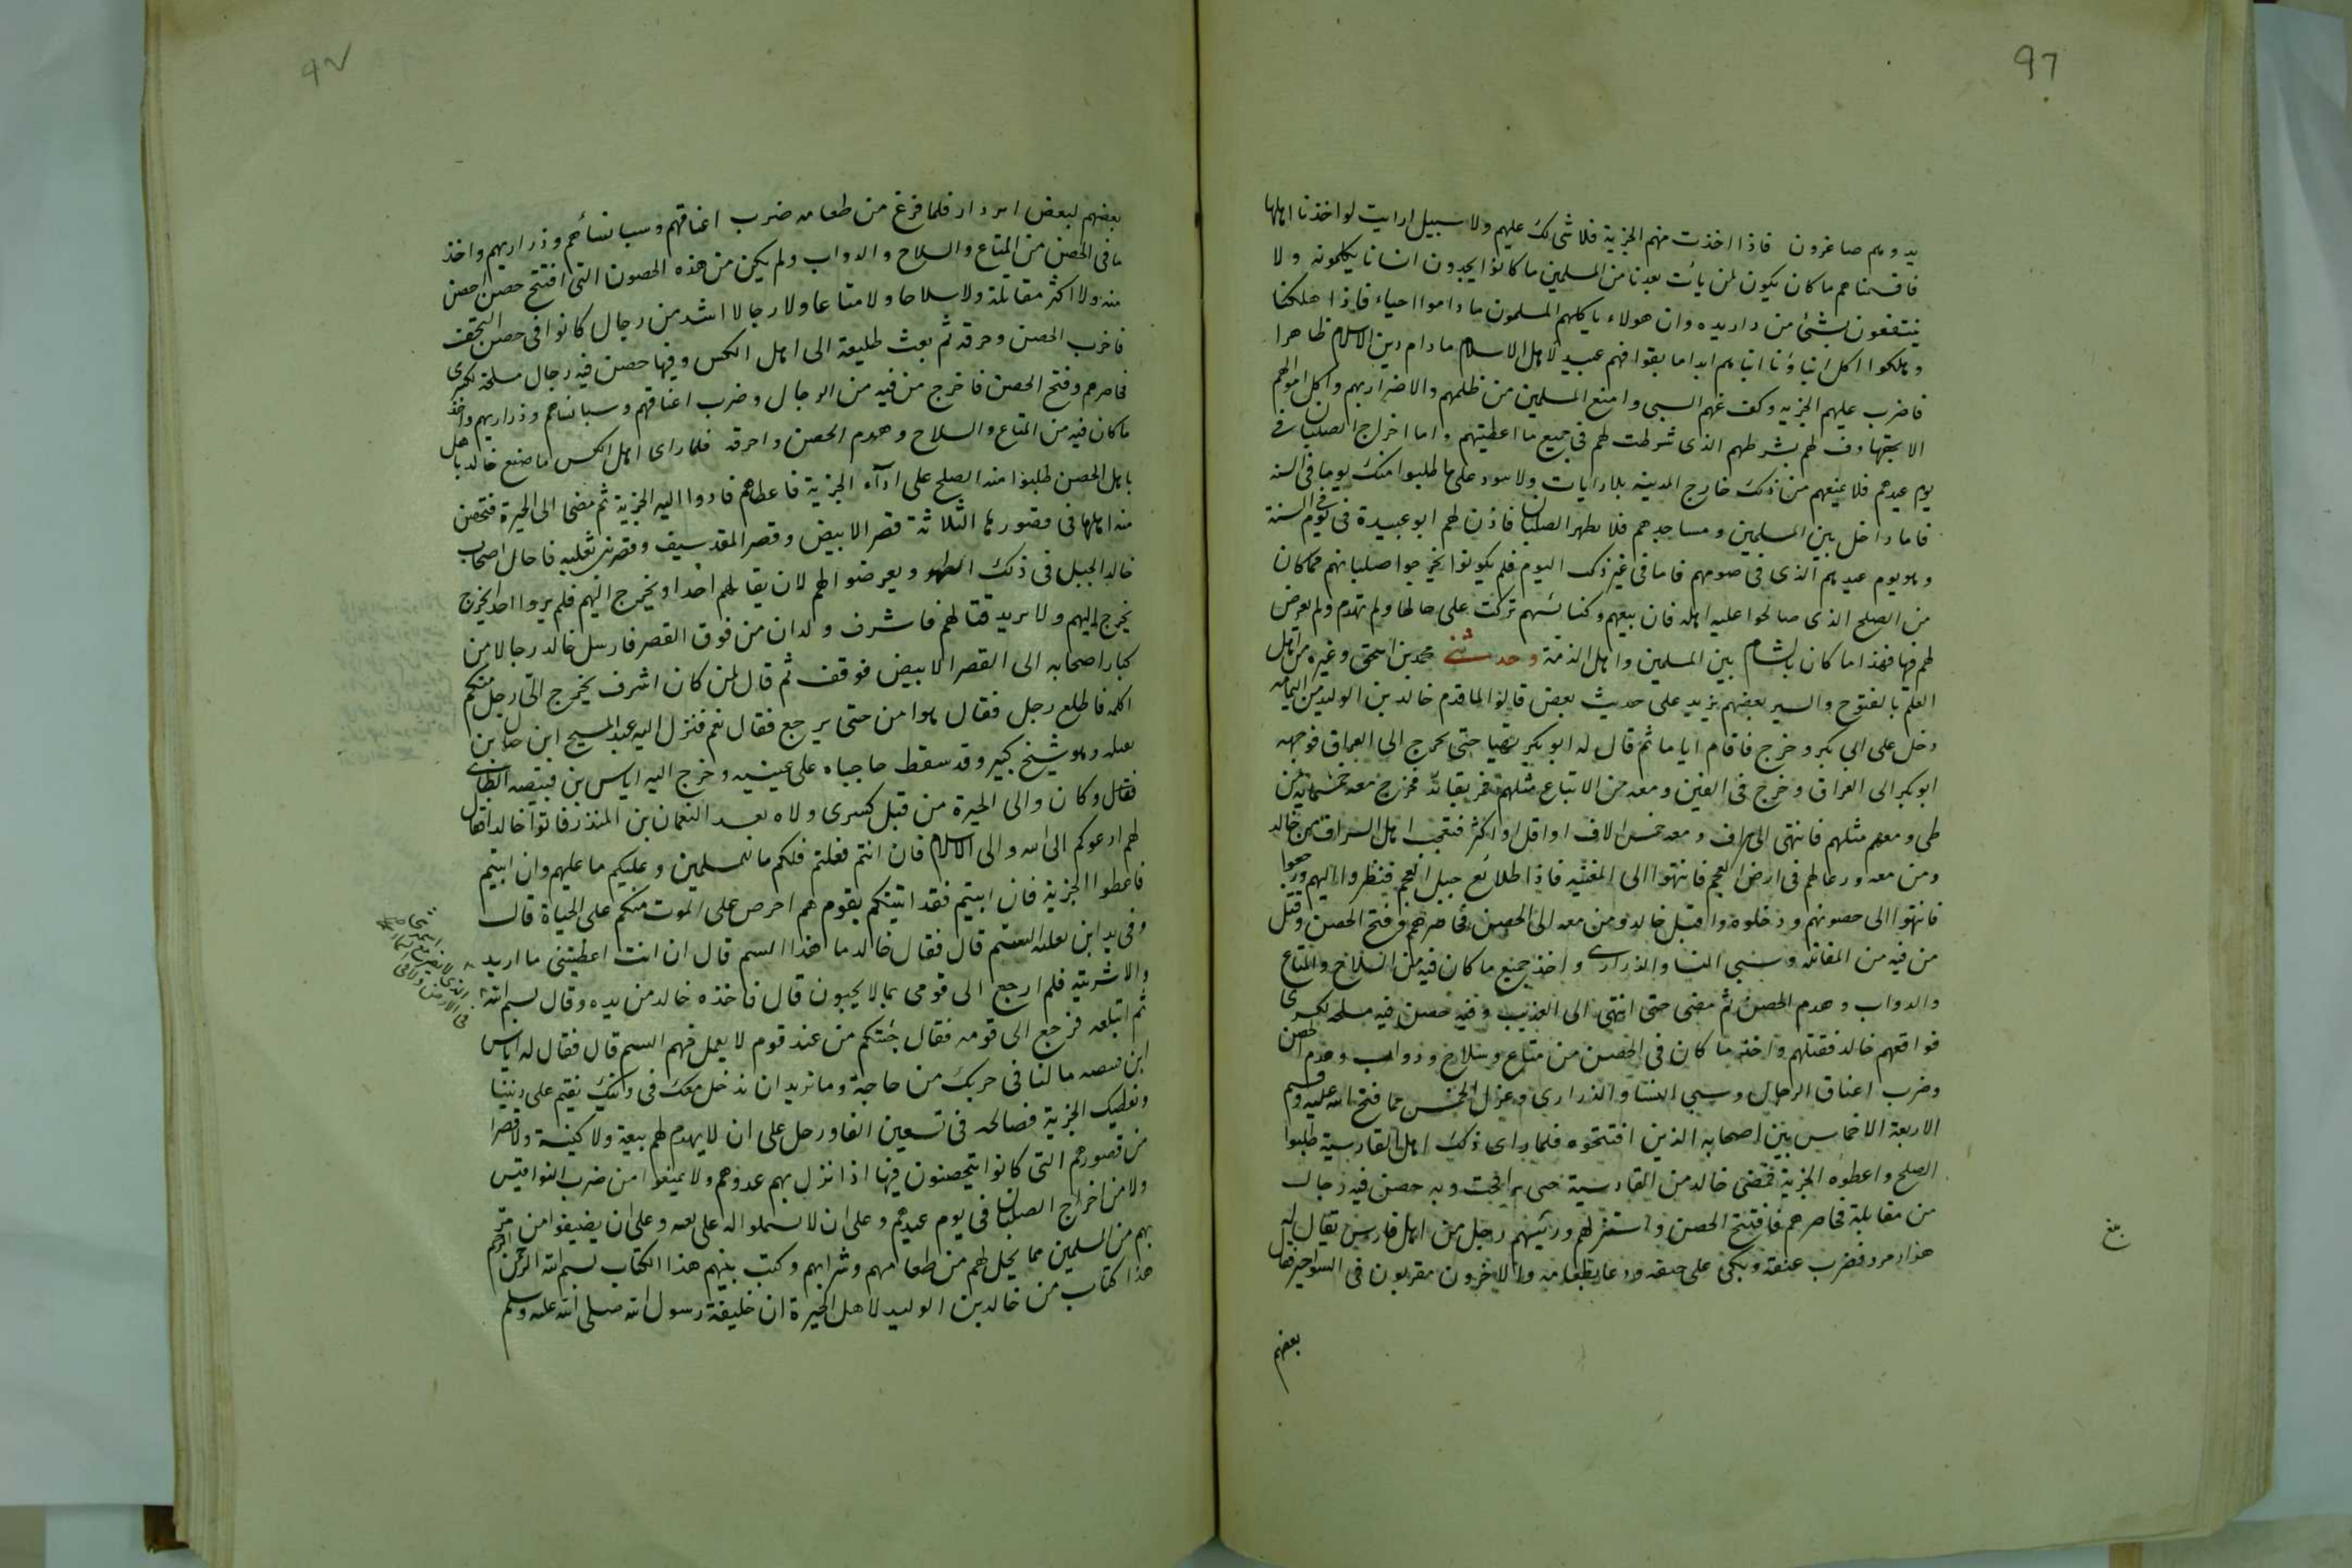 ٩٦
يد وهم صاغرون فاذا اخذت منهم الجزية فلا شى لك عليهم ولا سبيل ارايت لو اخذنا اهلها
فاقسمناهم ما كان يكون لمن يأت بعدنا من المسلمين ما كانوا يجدون انسانا يكلمونه ولا
ينتفعون بشئ من داريده وان هولاء ياكلهم المسلمون ما داموا احياء فاذا هلكنا
وهلكوا اكل ابناؤنا ابناءهم ابدا ما بقوا فهم عبيد لاهل الاسلام ما دام دين الاسلام ظاهرا
فاضرب عليهم الجزيه وكف عنهم السبى وامنع المسلمين من ظلمهم والاضرار بهم واكل اموالهم
الا بحقها وف لهم بشرطهم الذى شرطت لهم فى جميع ما اعطيتهم واما اخراج الصلبان فى
يوم عيدهم فلا تمنعهم من ذلك خارج المدينه بلا رايات ولا بنود على ما طلبوا منك يوما فى السنه
فاما داخل بين المسلمين ومساجدهم فلا تظهر الصلبان فاذن لهم ابو عبيدة فى يوم فى السنة
وهو يوم عيدهم الذى فى صومهم فاما فى غير ذلك اليوم فلم يكونوا يخرجوا صلبانهم فما كان
من الصلح الذى صالحوا عليه اهله فان بيعهم وكنائسهم تركت على حالها ولم تهدم ولم يعرض
لهم فيها فهذا ما كان بالشام بين المسلمين واهل الذمة وحدثنى محمد بن اسحق وغيره من اهل
العلم بالفتوح والسير بعضهم يزيد على حديث بعض قالوا لما قدم خالد بن الوليد من اليمامه
دخل على ابى بكر وخرج فاقام اياما ثم قال له ابو بكر تهيا حتى تخرج الى العراق فوجهه
ابو بكر الى العراق وخرج فى الفين ومعه من الاتباع مثلهم فمر بفائد فخرج معه خمسمائة من
طى ومعهم مثلهم فانتهى الى شراف ومعه خمسة الاف او اقل او اكثر فتعجب اهل السراف من خالد
ومن معه ورعالهم فى ارض العجم فانتهوا الى المغيثه فاذا طلائع خيل العجم فنظروا اليهم ورجعوا
فانتهوا الى حصونهم ودخلوه واقبل خالد ومن معه الى الحصن فحاصرهم وفتح الحصن وقتل
من فيه من المقاتله وسبى النسا والذرارى واخذ جميع ما كان فيه من السلاح والمتاع
والدواب وهدم الحصن ثم مضى حتى انتهى الى العذيب وفيه حصن فيه مسلحة لكسرى
فواقعهم خالد فقتلهم واخذ ما كان فى الحصن من متاع وسلاح ودواب وهدم الحصن
وضرب اعناق الرجال وسبى النسا والذرارى وعزل الخمس مما فتح الله عليه وقسم
الاربعة الاخماس بين اصحابه الذين افتتحوه فلما راى ذلك اهل القادسية طلبوا
الصلح واعطوه الجزية فمضى خالد من القادسية حتى نزل النجف وبه حصن فيه رجال
من مقاتلة فحاصرهم فافتتح الحصن واستنزلهم ورئيسهم رجل من اهل فارس يقال له
هزار مرد فضرب عنقه وتكى على جيفه ودعا بطعامه والاخرون مقربون فى السواجير فقال
بعضهم
بلغ
٩٧
بعضهم لبعض امردار فلما فرغ من طعامه ضرب اعناقهم وسبا نساءهم وذراريهم واخذ
ما فى الحصن من المتاع والسلاح والدواب ولم يكن من هذه الحصون التى افتتح حصن احصن
منه ولا اكثر مقاتلة ولا سلاحا ولا متاعا ولا رجالا اشد من رجال كانوا فى حصن النجف
فاخرب الحصن وحرقه ثم بعث طليعة الى اهل الكس وفيها حصن فيه رجال مسلحة لكسرى
فحاصرهم وفتح الحصن فاخرج من فيه من الرجال وضرب اعناقهم وسبا نساءهم وذراريهم واخذ
ما كان فيه من المتاع والسلاح وهدم الحصن واحرقه فلما راى اهل الكس ما صنع خالد باهل
باهل الحصن طلبوا منه الصلح على اداء الجزية فاعطاهم فادوا اليه الجزية ثم مضى الى الحيرة فتحصن
منه اهلها فى قصورها الثلاثة قصر الابيض وقصر المقدسيف وقصر بنى ثعلبه فاجال اصحاب
خالد الجبل فى ذلك الظهر ويعرضوا لهم لان يقاتلهم احد او يخرج اليهم فلم يروا احدا يخرج
يخرج اليهم ولا يريد قتالهم فاشرف ولدان من فوق القصر فارسل خالد رجالا من
كبار اصحابه الى القصر الابيض فوقف ثم قال لمن كان اشرف يخرج الى رجل منكم
اكلمه فاطلع رجل فقال هو امن حتى يرجع فقال نعم فنزل اليه عبد المسيح ابن حيان بن
بقيله وهو شيخ كبير وقد سقط حاجباه على عينيه وخرج اليه اياس بن قبيصه الطائى
فقال وكان والى الحيرة من قبل كسرى ولاه بعد النعمان بن المنذر فاتوا خالدا فقال
لهم ادعوكم الى الله والى الاسلام فان انتم فعلتم فلكم ما للمسلمين وعليكم ما عليهم وان ابيتم
فاعطوا الجزية فان ابيتم فقد اتيتكم بقوم هم احرص على الموت منكم على الحياة قال
وفى يد ابن بقيله السم قال فقال خالد ما هذا السم قال ان انت اعطيتنى ما اريد
والا شربته فلم ارجع الى قومى بما لا يحبون قال فاخذه خالد من يده وقال بسم الله
ثم ابتلعه فرجع الى قومه فقال جئتكم من عند قوم لا يعمل فيهم السم قال فقال له اياس
ابن قبيصه ما لنا فى حربك من حاجة وما نريد ان ندخل معك فى دينك نقيم على ديننا
ونعطيك الجزية فصالحه فى تسعين الفا ورحل على ان لا يهدم لهم بيعة ولا كنيسة ولا قصرا
من قصورهم التى كانوا يتحصنون فيها اذا نزل بهم عدوهم ولا يمنعوا من ضرب النواقيس
ولا من اخراج الصلبان فى يوم عيدهم وعلى ان لا يشتملوا له على بغيه وعلى ان يضيفوا من مر
بهم من المسلمين مما يحل لهم من طعامهم وشرابهم وكتب بينهم هذا الكتاب بسم الله الرحمن الرحيم
هذا كتاب من خالد بن الوليد لاهل الحيرة ان خليفة رسول الله صلى الله عليه وسلم
الذى لا يضر مع اسمه
فى الارض ولا فى